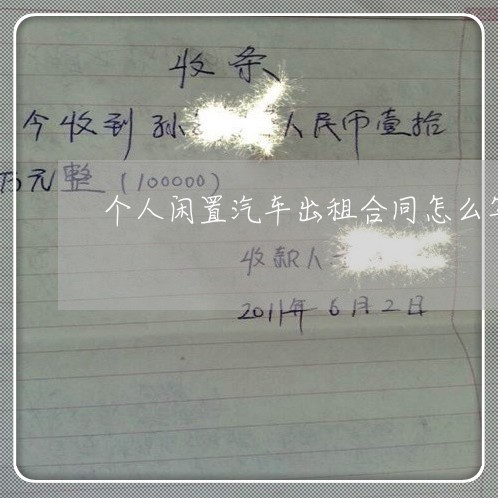 收条
今收到孙 人民币壹拾
万元整（100000）
个人闲置汽车出租合同怎么
收款人
2011年6月2日